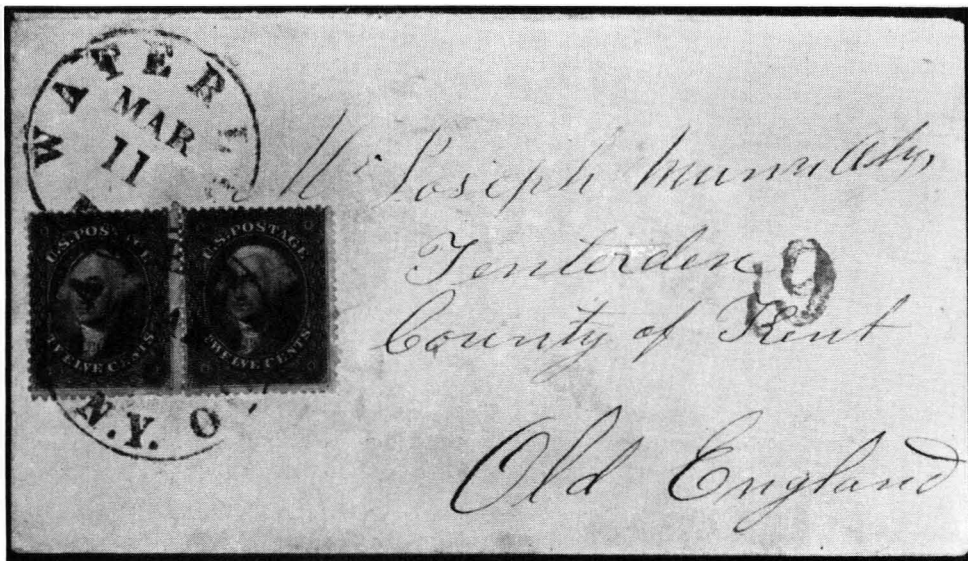 WATER
MAR
11
N.Y. O
U.S. POSTAGE
TWELVE CENTS
U.S. POSTAGE
TWELVE CENTS
Joseph
Tenterden
19
County of Kent
Old England